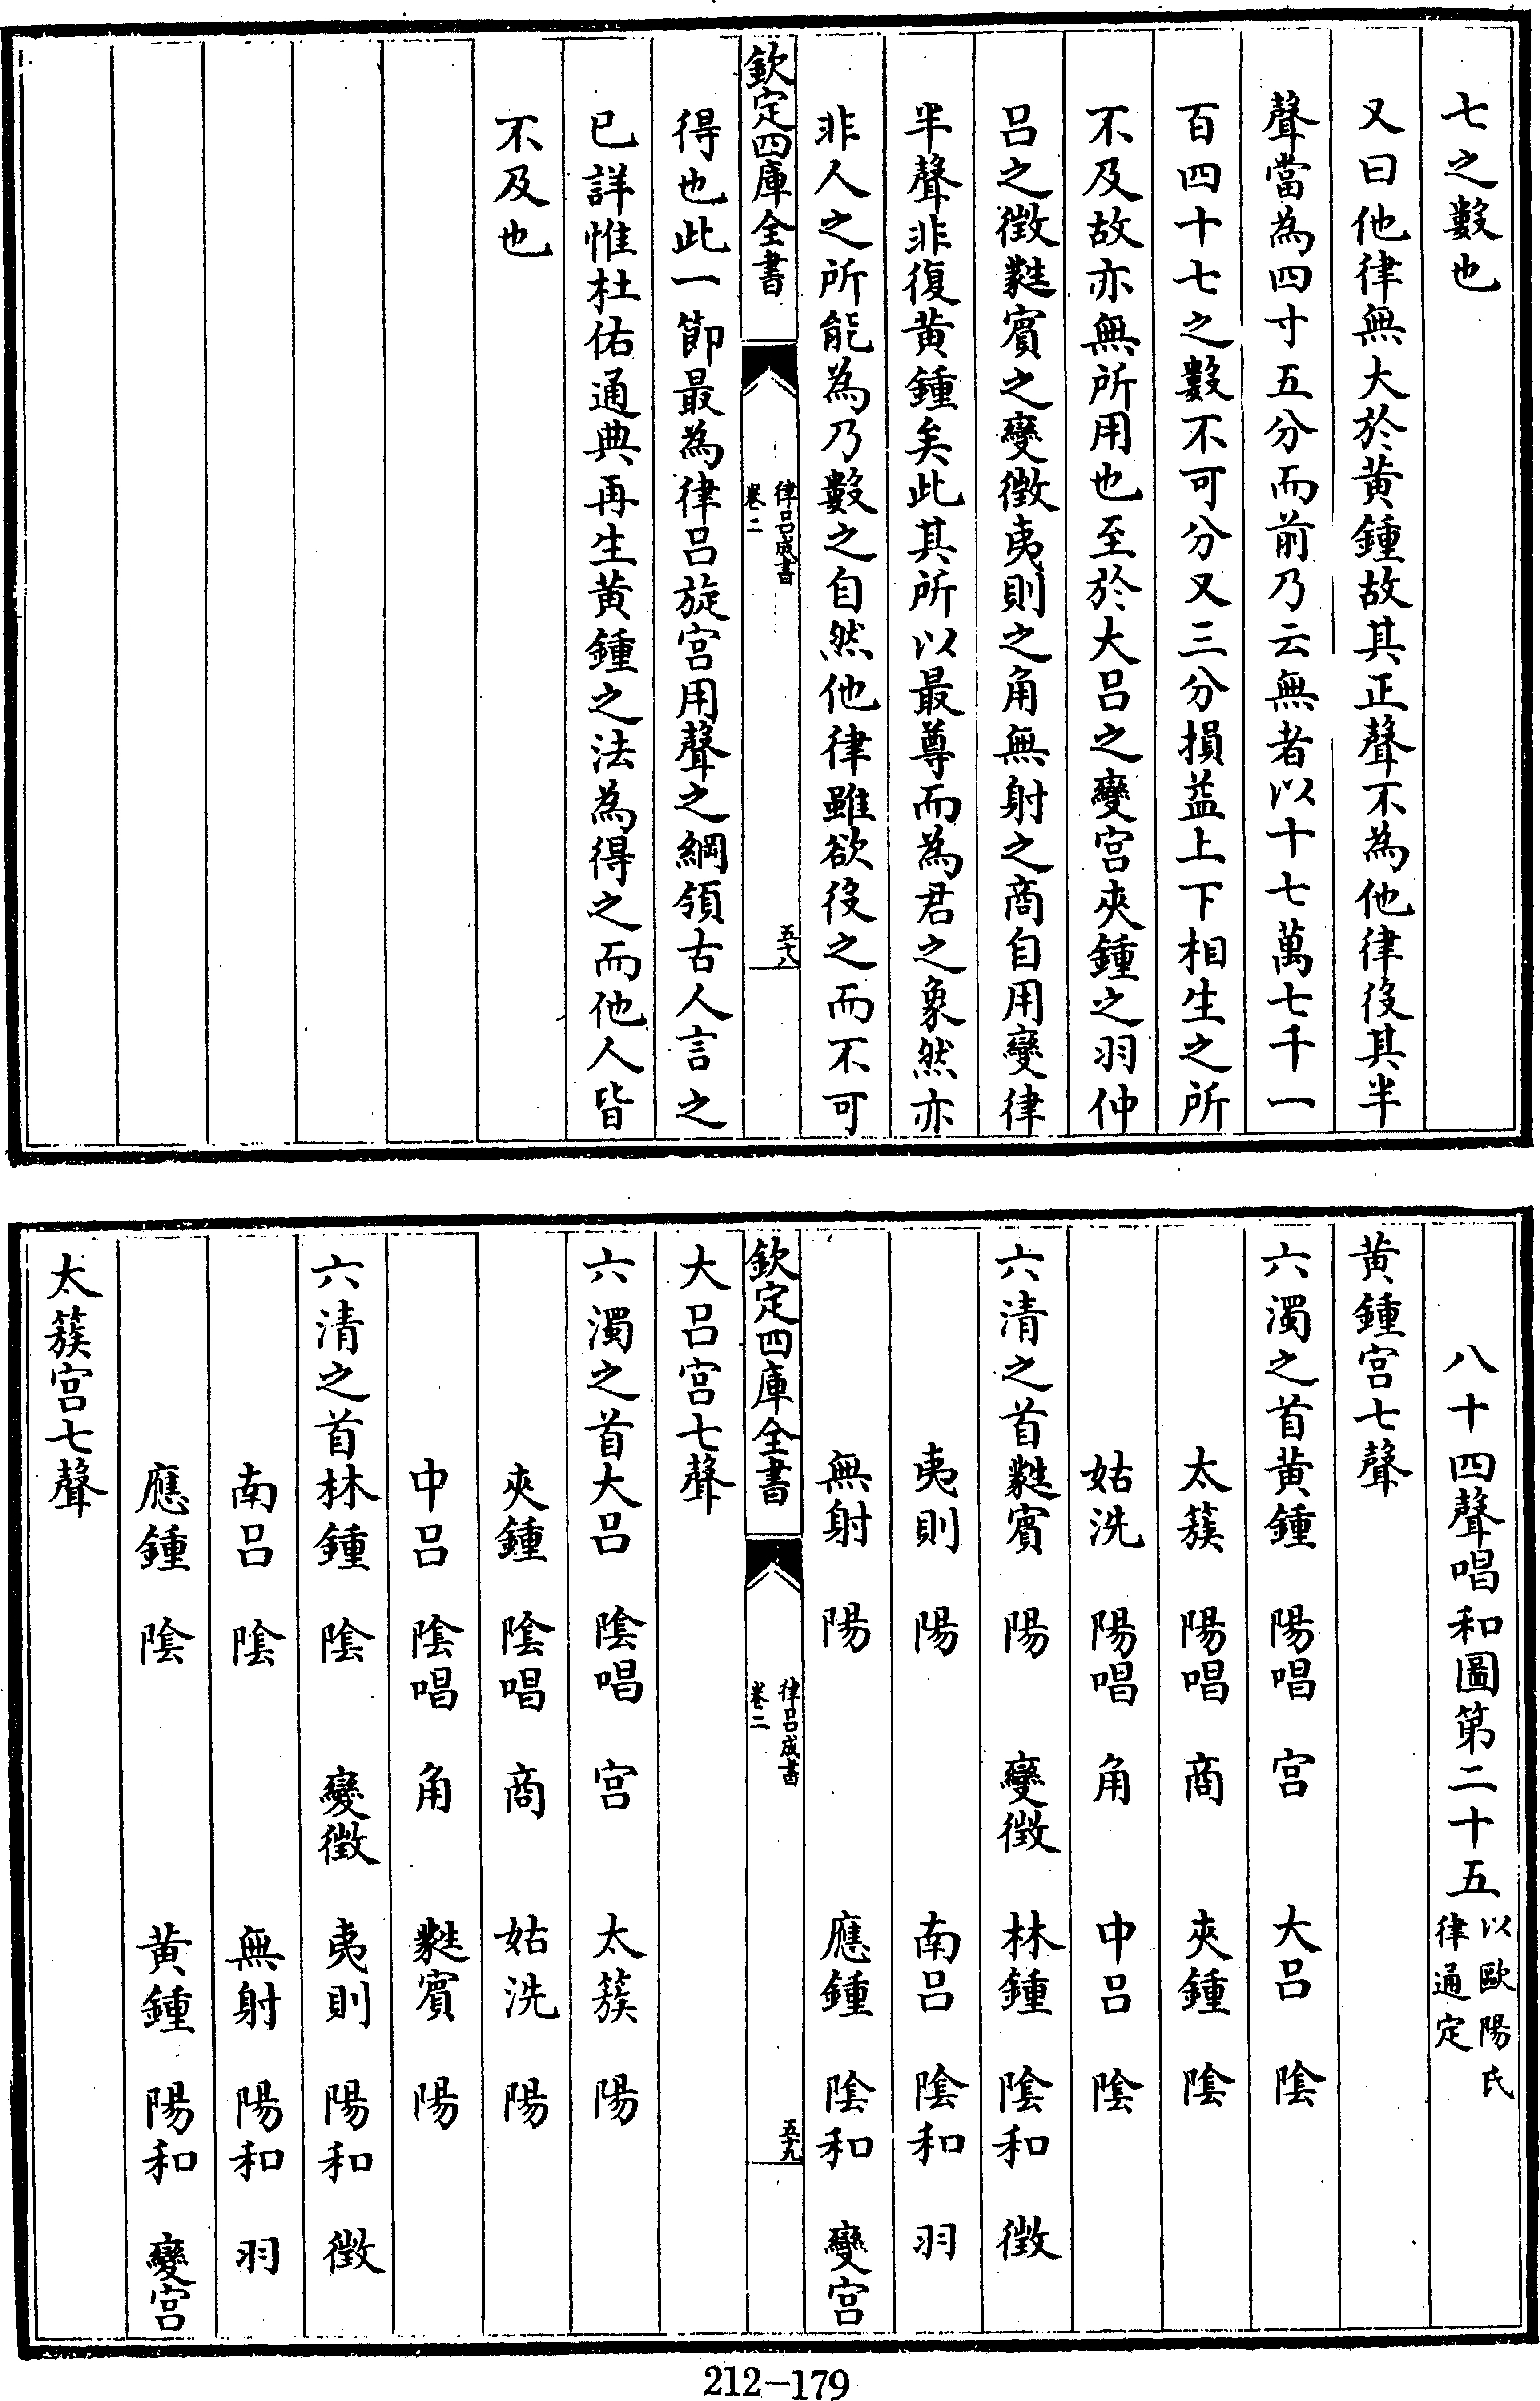 七之數也
又曰他律無大於黄鍾故其正聲不為他律役其半
聲當為四寸五分而前乃云無者以十七萬七千一
百四十七之數不可分又三分損益上下相生之所
不及故亦無所用也至於大吕之變宫夾鍾之羽仲
吕之徵蕤賓之變徵夷則之角無射之商自用變律
半聲非復黄鍾矣此其所以最尊而為君之象然亦
非人之所能為乃數之自然他律雖欲役之而不可
欽定四庫全書
律吕成書
卷二
五十八
得也此一節最為律吕旋宫用聲之綱領古人言之
已詳惟杜佑通典再生黄鍾之法為得之而他人皆
不及也
八十四聲唱和圖第二十五以歐陽氏
律通定
黄鍾宫七聲
六濁之首黄鍾 陽唱 宫 大吕 陰
太簇 陽唱 商 夾鍾 陰
姑洗 陽唱 角 中吕 陰
六清之首蕤賓 陽 變徵 林鍾 陰和 徵
夷則 陽 南吕 陰和 羽
無射 陽 應鍾 陰和 變宫
欽定四庫全書
律吕成書
卷二
五十九
大吕宫七聲
六濁之首大吕 陰唱 宫 太簇 陽
夾鍾 陰唱 商 姑洗 陽
中吕 陰唱 角 蕤賓 陽
六清之首林鍾 陰 變徵 夷則 陽和 徵
南吕 陰 無射 陽和 羽
應鍾 陰 黄鍾 陽和 變宫
太簇宫七聲
212-179